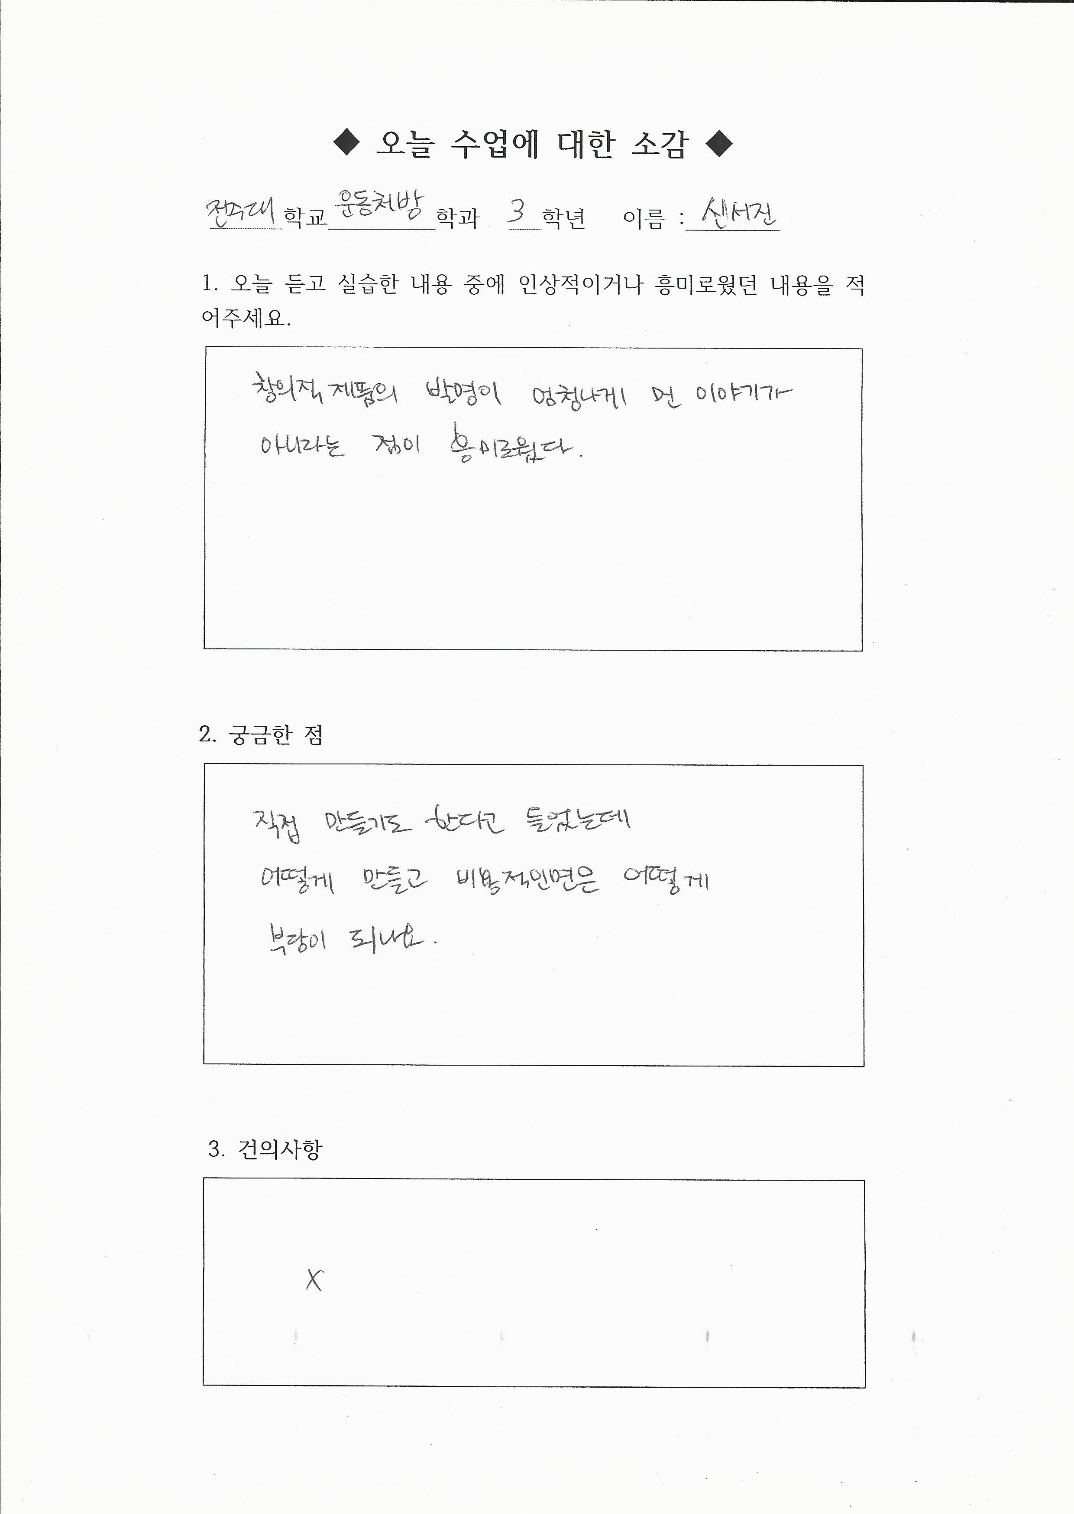 ◆ 오늘 수업에 대한 소감 ◆
전주대 학교 운동처방 학과 3 학년 이름 : 신서진
1. 오늘 듣고 실습한 내용 중에 인상적이거나 흥미로웠던 내용을 적
어주세요.
창의적 제품의 발명이 엄청나게 먼 이야기가
아니라는 점이 흥미로웠다.
2. 궁금한 점
직접 만들기도 한다고 들었는데
어떻게 만들고 비용적인면은 어떻게
부담이 되나요.
3. 건의사항
X